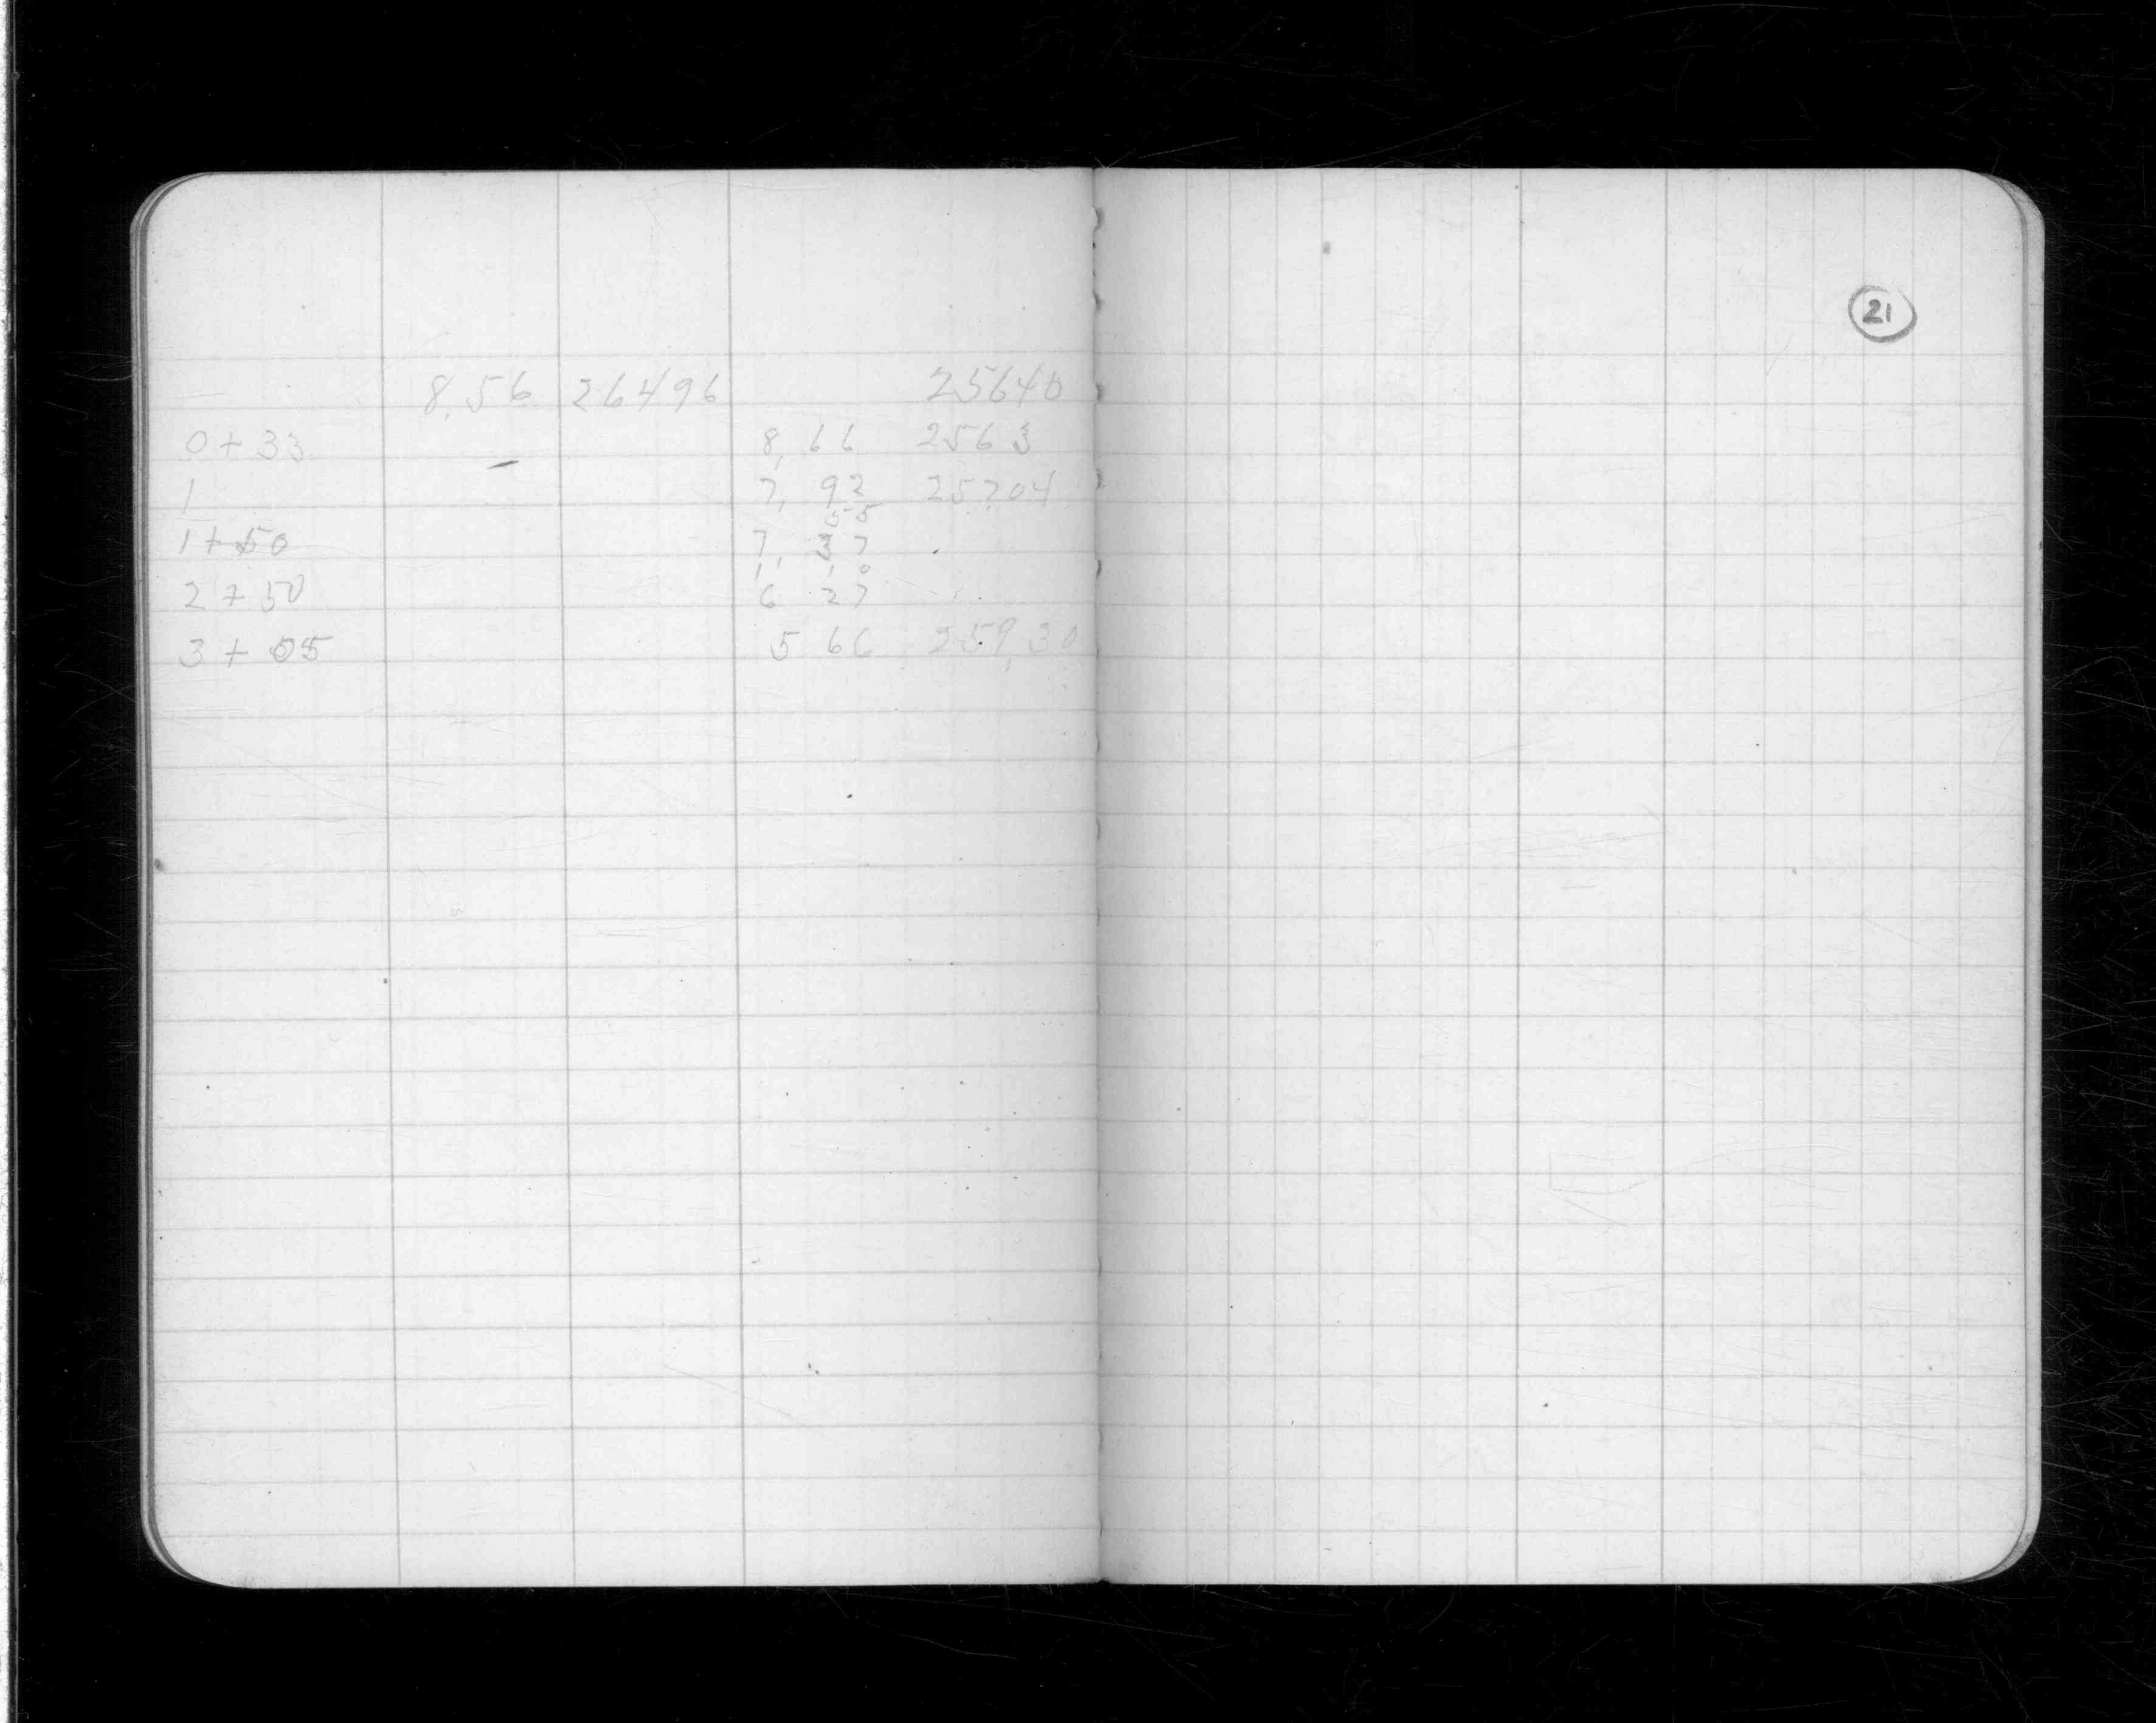 21
8.56 26496 25640
0+33 8, 66 2563
1 7, 92 25704
55
1+50 7, 37
1, 10
2+50 6 27
3+05 5 66 259,30